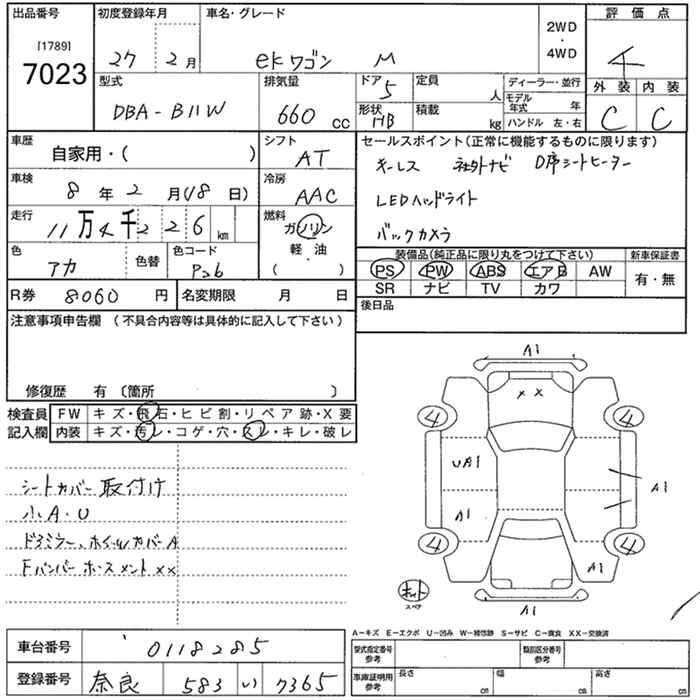 出品番号 初度登録年月 車名・グレード 2WD・4WD 評価点
[1789] 7023 27 2月 ekワゴン M 4
型式 排気量 ドア 5 定員 人 ディーラー・並行 外装 内装
DBA-B11W 660 cc 形状 HB 積載 kg モデル年式 年 ハンドル 左・右 C C
車歴 自家用・( ) シフト AT
車検 8年2月(18日) 冷房 AAC
走行 11万4千226km 燃料 ガソリン 軽・油 ( ・ )
色 アカ 色替 色コード P26
R券 8060円 名変期限 月 日
セールスポイント(正常に機能するものに限ります)
キーレス 社外ナビ D席シートヒーター
LEDヘッドライト
バックカメラ
装備品(純正品に限り丸をつけて下さい) 新車保証書
PS PW ABS エアB AW 有・無
SR ナビ TV カワ
後日品
注意事項申告欄(不具合内容等は具体的に記入して下さい)
修復歴 有〔箇所 〕
検査員 FW キズ・飛石・ヒビ割・リペア跡・X要
記入欄 内装 キズ・汚レ・コゲ・穴・スレ・キレ・破レ
シートカバー取付け
小A・U
ドアミラー、ホイールカバーA
Fバンパーホースメント××
A1
××
4 4
UA1
A1
A1
4 4
A1
キット
スペア
A1
A-キズ E-エクボ U-凹み W-補修跡 S-サビ C-腐食 XX-交換済
車台番号 0118285
登録番号 奈良 583 い 7365
型式指定番号 参考 類別区分番号 参考
車庫証明用 参考 長さ cm 幅 cm 高さ cm